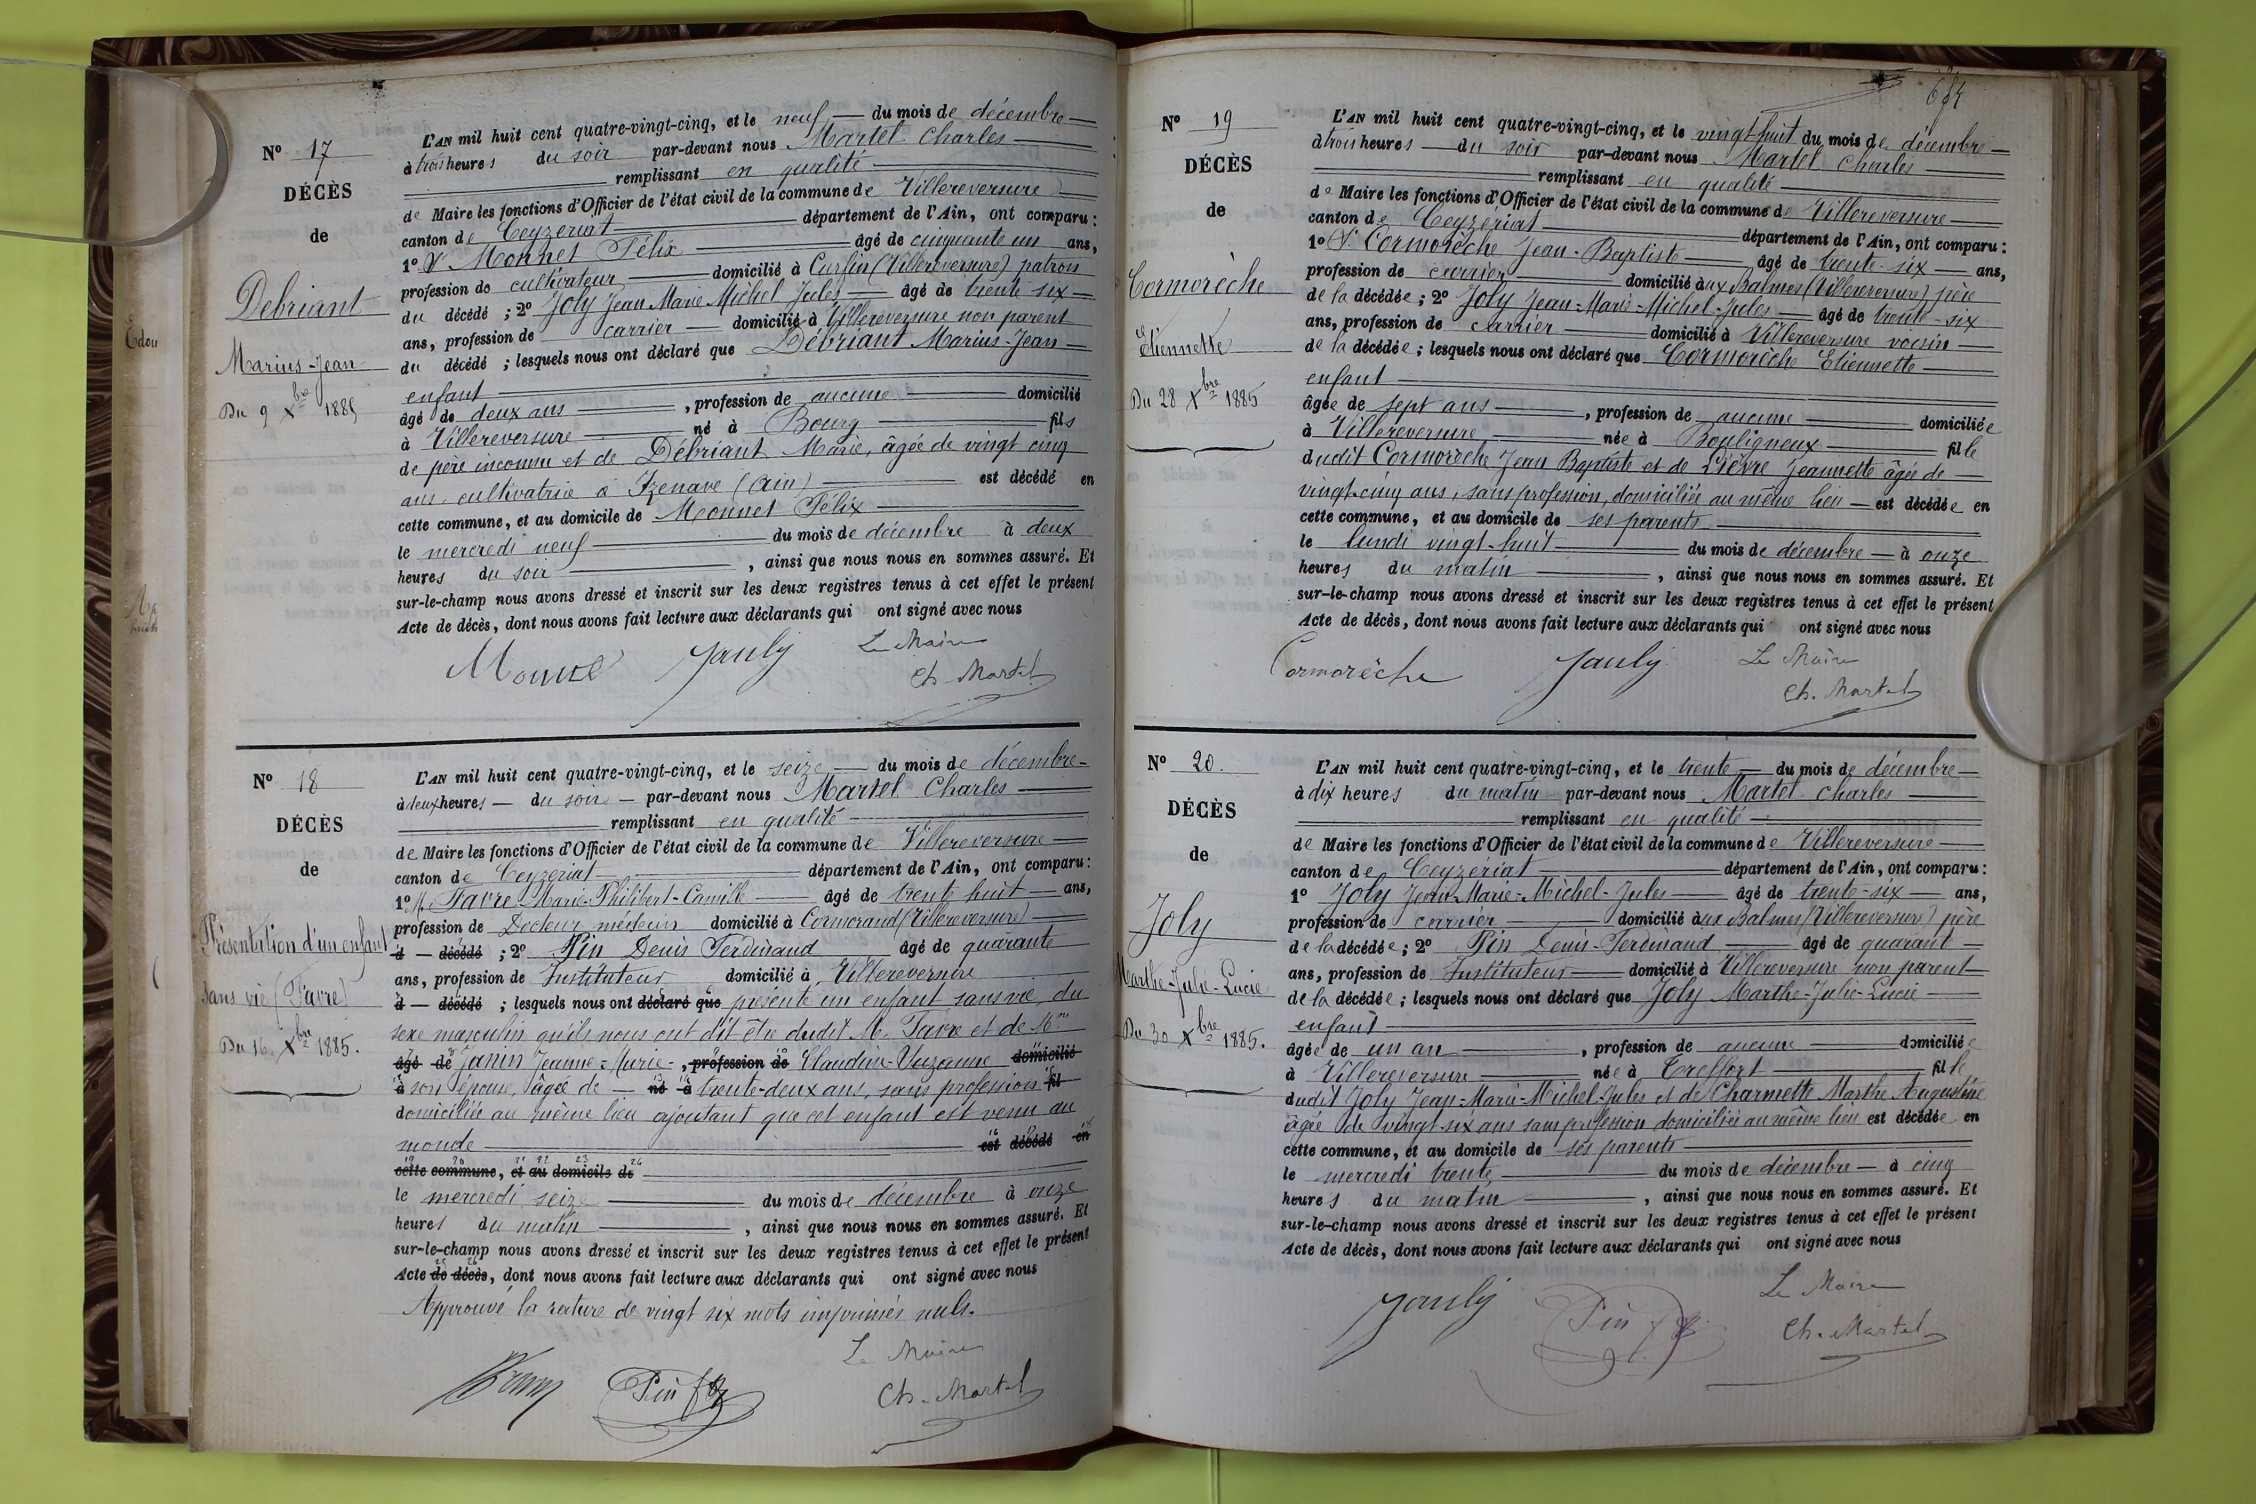 Nº 17
DÉCÈS
de
Debriant
Marius-Jean
Du 9 Xbre 1885
L'AN mil huit cent quatre-vingt-cinq, et le neuf du mois de décembre
à trois heures du soir par-devant nous Martel Charles
remplissant en qualité
de Maire les fonctions d'Officier de l'état civil de la commune de Villereversure
canton de Ceyzeriat département de l'Ain, ont comparu :
1º Sr Monnet Félix âgé de cinquante un ans,
profession de cultivateur domicilié à Curfin (Villereversure) patron
du décédé ; 2º Joly Jean Marie Michel Jules âgé de trente six
ans, profession de carrier domicilié à Villereversure non parent
du décédé ; lesquels nous ont déclaré que Débriant Marius-Jean
enfant
âgé de deux ans , profession de aucune domicilié
à Villereversure né à Bourg fils
de père inconnu et de Débriant Marie, âgée de vingt cinq
ans, cultivatrice à Izenave (Ain) est décédé en
cette commune, et au domicile de Monnet Félix
le mercredi neuf du mois de décembre à deux
heures du soir , ainsi que nous nous en sommes assuré. Et
sur-le-champ nous avons dressé et inscrit sur les deux registres tenus à cet effet le présent
Acte de décès, dont nous avons fait lecture aux déclarants qui ont signé avec nous
Monnet Jauly Le Maire
Ch. Martel
Nº 18
DÉCÈS
de
Présentation d'un enfant
sans vie (Favre)
Du 16 Xbre 1885.
L'AN mil huit cent quatre-vingt-cinq, et le seize du mois de décembre
à deux heures du soir par-devant nous Martel Charles
remplissant en qualité
de Maire les fonctions d'Officier de l'état civil de la commune de Villereversure
canton de Ceyzeriat département de l'Ain, ont comparu :
1º M. Favre Marie-Philibert-Camille âgé de trente huit ans,
profession de Docteur médecin domicilié à Cormorand (Villereversure)
d décédé ; 2º Pin Denis Ferdinand âgé de quarante
ans, profession de Instituteur domicilié à Villereversure
d décédé ; lesquels nous ont déclaré que présenté un enfant sans vie, du
sexe masculin qu'ils nous ont dit être dudit M. Favre et de Mme
âgé de Janin Jeanne-Marie-, profession de Claudine-Suzanne domicilié
à son épouse, âgée de né à trente-deux ans, sans profession fil
domiciliée au même lieu ajoutant que cet enfant est venu au
monde est décédé en
cette commune, et au domicile de
le mercredi seize du mois de décembre à onze
heures du matin , ainsi que nous nous en sommes assuré. Et
sur-le-champ nous avons dressé et inscrit sur les deux registres tenus à cet effet le présent
Acte de décès, dont nous avons fait lecture aux déclarants qui ont signé avec nous
Approuvé la rature de vingt six mots imprimés nuls.
Pin Le Maire
Ch. Martel
Nº 19
DÉCÈS
de
Cormorèche
Etiennette
Du 28 Xbre 1885
L'AN mil huit cent quatre-vingt-cinq, et le vingt-huit du mois de décembre
à trois heures du soir par-devant nous Martel Charles
remplissant en qualité
de Maire les fonctions d'Officier de l'état civil de la commune de Villereversure
canton de Ceyzériat département de l'Ain, ont comparu :
1º Sr Cormorèche Jean-Baptiste âgé de trente-six ans,
profession de carrier domicilié aux Balmes (Villereversure) père
de la décédée ; 2º Joly Jean-Marie-Michel-Jules âgé de trente-six
ans, profession de carrier domicilié à Villereversure voisin
de la décédée ; lesquels nous ont déclaré que Cormorèche Etiennette
enfant
âgée de sept ans , profession de aucune domiciliée
à Villereversure née à Bouligneux fille
dudit Cormorèche Jean Baptiste et de Lièvre Jeannette âgée de
vingt-cinq ans, sans profession, domiciliée au même lieu est décédée en
cette commune, et au domicile de ses parents
le lundi vingt-huit du mois de décembre à onze
heures du matin , ainsi que nous nous en sommes assuré. Et
sur-le-champ nous avons dressé et inscrit sur les deux registres tenus à cet effet le présent
Acte de décès, dont nous avons fait lecture aux déclarants qui ont signé avec nous
Cormorèche Jauly Le Maire
Ch. Martel
Nº 20.
DÉCÈS
de
Joly
Marthe-Julie-Lucie
Du 30 Xbre 1885.
L'AN mil huit cent quatre-vingt-cinq, et le trente du mois de décembre
à dix heures du matin par-devant nous Martel Charles
remplissant en qualité
de Maire les fonctions d'Officier de l'état civil de la commune de Villereversure
canton de Ceyzériat département de l'Ain, ont comparu :
1º Joly Jean-Marie-Michel-Jules âgé de trente-six ans,
profession de carrier domicilié aux Balmes (Villereversure) père
de la décédée ; 2º Pin Denis-Ferdinand âgé de quarante
ans, profession de Instituteur domicilié à Villereversure non parent
de la décédée ; lesquels nous ont déclaré que Joly Marthe-Julie-Lucie
enfant
âgée de un an , profession de aucune domiciliée
à Villereversure née à Treffort fille
dudit Joly Jean-Marie-Michel-Jules et de Charmette Marthe Augustine
âgée de vingt-six ans sans profession domiciliée au même lieu est décédée en
cette commune, et au domicile de ses parents
le mercredi trente du mois de décembre à cinq
heures du matin , ainsi que nous nous en sommes assuré. Et
sur-le-champ nous avons dressé et inscrit sur les deux registres tenus à cet effet le présent
Acte de décès, dont nous avons fait lecture aux déclarants qui ont signé avec nous
Jauly Pin Le Maire
Ch. Martel